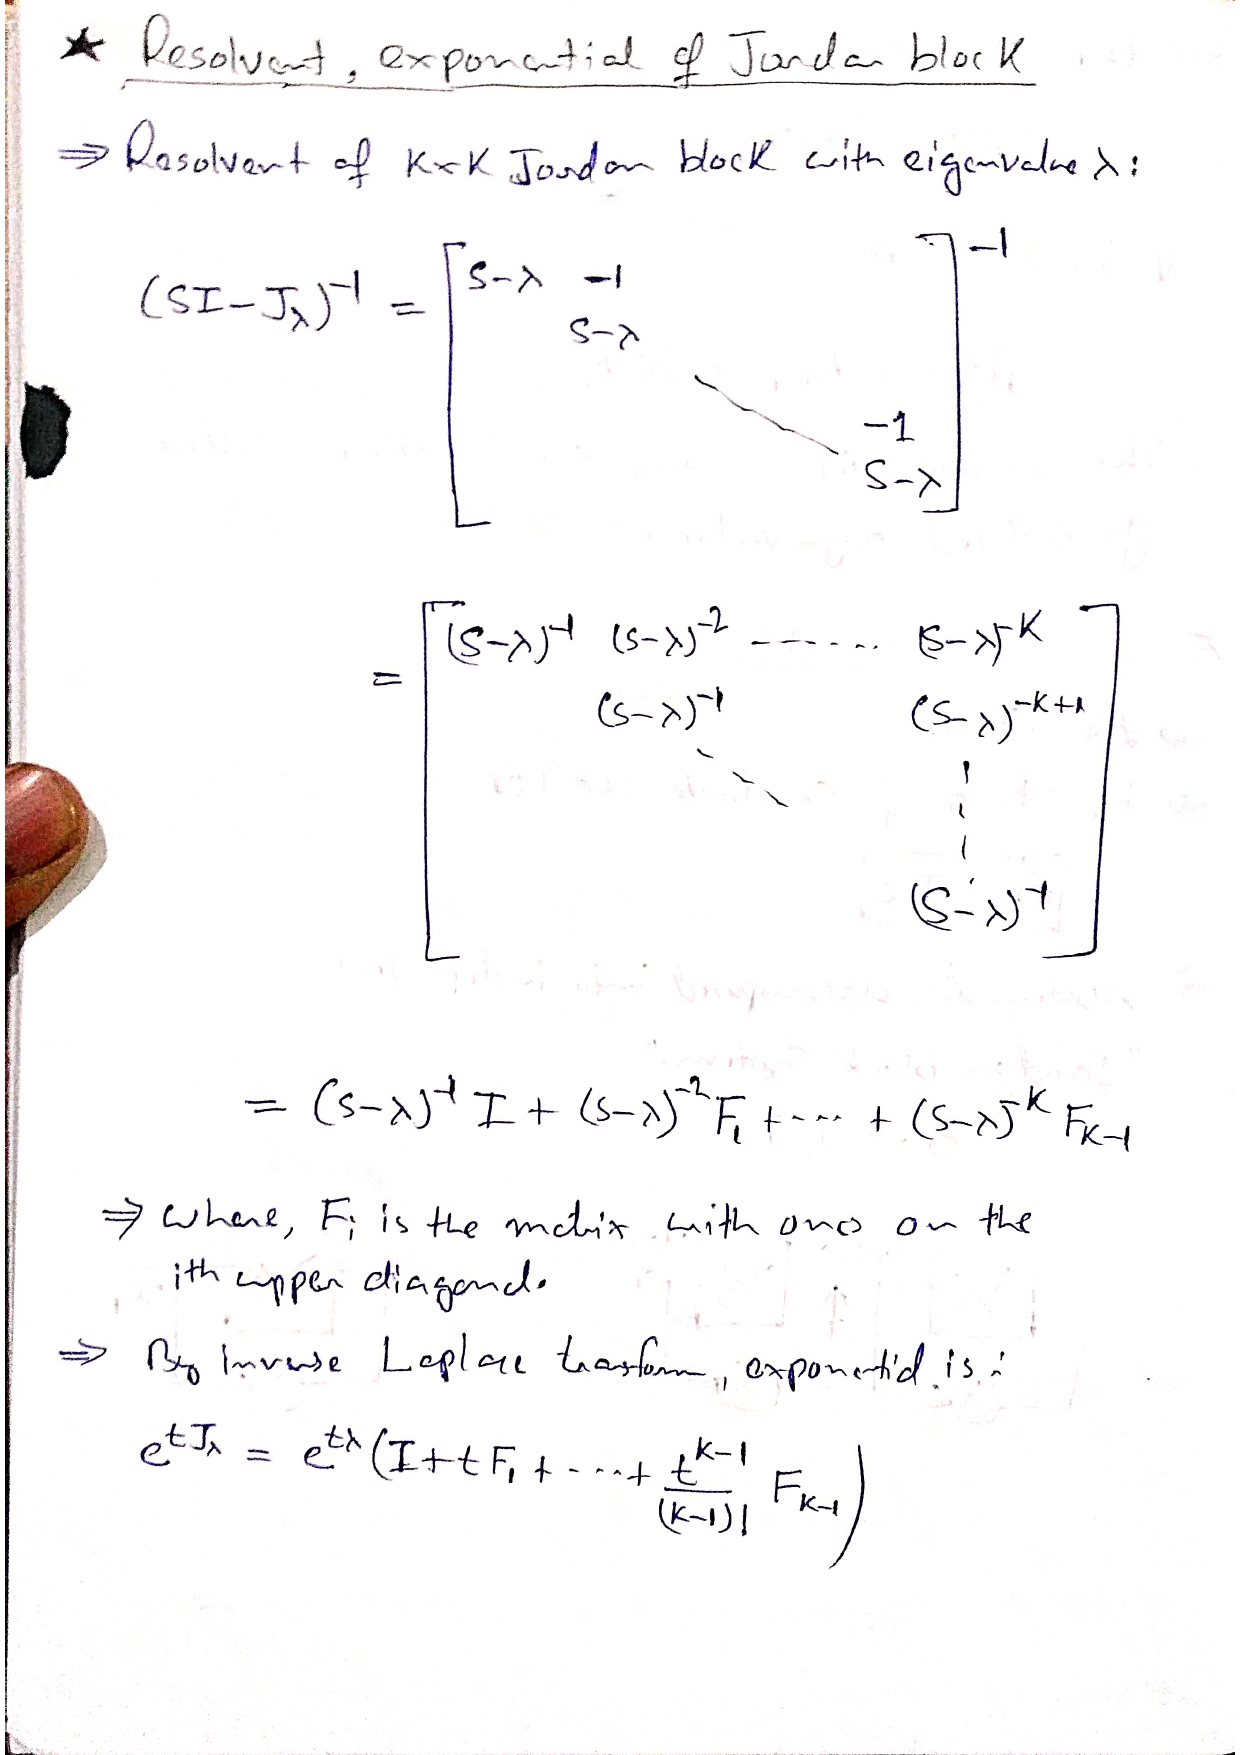 ★ Resolvent, exponential of Jordan block
⇒ Resolvent of K×K Jordan block with eigenvalue λ:
(SI-Jλ)⁻¹ = [ S-λ -1
S-λ
-1
S-λ ]⁻¹
= [ (S-λ)⁻¹ (S-λ)⁻² ------ (S-λ)⁻ᴷ
(S-λ)⁻¹ (S-λ)⁻ᴷ⁺¹
(S-λ)⁻¹ ]
= (S-λ)⁻¹ I + (S-λ)⁻² F₁ + ---- + (S-λ)⁻ᴷ F_{K-1}
⇒ where, Fᵢ is the matrix with ones on the
ith upper diagonal.
⇒ By Inverse Laplace transform, exponential is:
e^{tJλ} = e^{tλ} (I + tF₁ + ---- + t^{K-1}/(K-1)! F_{K-1})